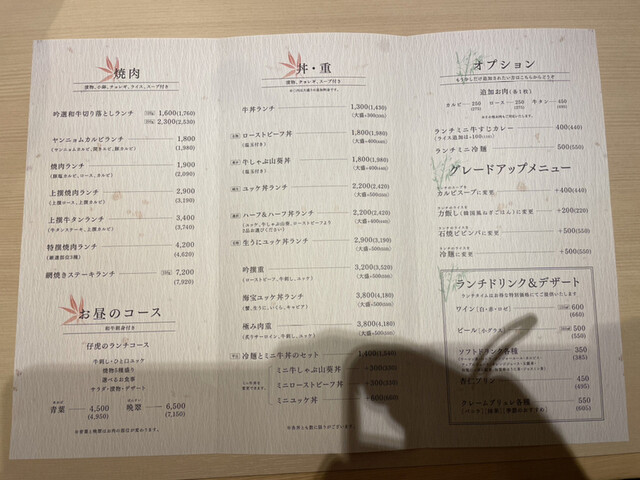 焼肉
漬物、小鉢、チョレギ、ライス、スープ付き
吟選和牛切り落としランチ 1,600(1,760)
2,300(2,530)
ヤンニョムカルビランチ 1,800
(1,980)
焼肉ランチ 1,900
(2,090)
上撰焼肉ランチ 2,900
(上撰ロース、上撰カルビ) (3,190)
上撰牛タンランチ 3,400
(3,740)
特撰焼肉ランチ 4,200
(厳選部位5種) (4,620)
網焼きステーキランチ 7,200
(7,920)
お昼のコース
和牛刺身付き
仔虎のランチコース
牛刺し・ひと口ユッケ
焼物5種盛り
選べるお食事
サラダ・漬物・デザート
青葉 4,500
(4,950)
晩翠 6,500
(7,150)
※青葉と晩翠はお肉の部位が変わります。
丼・重
漬物、チョレギ、スープ付き
牛丼ランチ 1,300(1,430)
(大盛+300)
ローストビーフ丼 1,800(1,980)
(温玉付き)
牛しゃぶ山葵丼 1,800(1,980)
(温玉付き)
ユッケ丼ランチ 2,200(2,420)
(大盛+500)
ハーフ&ハーフ丼ランチ 2,200(2,420)
(ユッケ、牛しゃぶ山葵、ローストビーフより
2品お選びください)
生うにユッケ丼ランチ 2,900(3,190)
(大盛+500)
吟撰重 3,200(3,520)
(ローストビーフ、牛刺し、ユッケ) (大盛+500)
海宝ユッケ丼ランチ 3,800(4,180)
(蟹、生うに、いくら、キャビア) (大盛+500)
極み肉重 3,800(4,180)
(炙りサーロイン、牛刺し、ユッケ) (大盛+500)
冷麺とミニ丼のセット
ミニ牛しゃぶ山葵丼
ミニローストビーフ丼
ミニユッケ丼
オプション
もう少しだけ追加されたい方はこちらからどうぞ
追加お肉(各1枚)
カルビ 250 ロース 250 牛タン 450
ランチミニ牛すじカレー 400(440)
(ライス追加は+100)
ランチミニ冷麺 500(550)
グレードアップメニュー
ランチのスープを
カルビスープに変更 +400(440)
ランチのライスを
力飯し(韓国風ねぎごはん)に変更 +200(220)
ランチのライスを
石焼ビビンバに変更 +500(550)
ランチのライスを
冷麺に変更 +500(550)
ランチドリンク&デザート
ランチタイムはお得な特別価格にてご提供いたします
ワイン(白・赤・ロゼ) 600
(660)
ビール(小グラス) 500
(550)
ソフトドリンク各種 350
(385)
杏仁プリン 450
(495)
クレームブリュレ各種 550
(605)